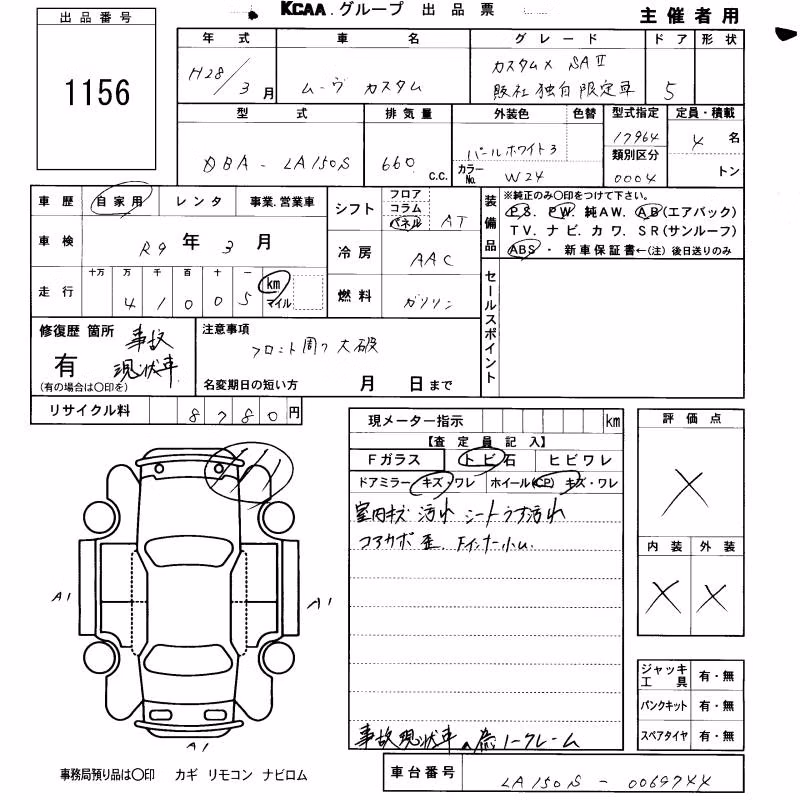 KCAA.グループ 出品票
主催者用
出品番号
1156
年式 車名 グレード ドア 形状
H28/3月 ムーヴ カスタム カスタムX SAⅡ 5
販社独自限定車
型式 排気量 外装色 色替 型式指定 定員・積載
17964 4名
DBA-LA150S 660 c.c. パールホワイト3 類別区分
カラーNo. W24 0004 トン
車歴 自家用 レンタ 事業.営業車
シフト フロア コラム パネル AT
装備品 ※純正のみ〇印をつけて下さい。
PS. PW. 純AW. AB(エアバック)
TV. ナビ. カワ. SR(サンルーフ)
ABS・新車保証書←(注)後日送りのみ
車検 R9年3月
冷房 AAC
走行 十万 万 千 百 十 一
41005 km マイル
燃料 ガソリン
セールスポイント
修復歴 箇所 事故
有 現状車
(有の場合は〇印を)
注意事項
フロント周り大破
名変期日の短い方 月 日まで
リサイクル料 8780円
現メーター指示 km
【査定員記入】
Fガラス トビ石 ヒビワレ
ドアミラー キズ・ワレ ホイール CP キズ・ワレ
室内キズ 汚れ シートうす汚れ
コアカボ 歪. Fインナー小ム.
評価点
X
内装 外装
X X
A1
A1
A1
ジャッキ工具 有・無
パンクキット 有・無
スペアタイヤ 有・無
事故現状車の為ノークレーム
事務局預り品は〇印 カギ リモコン ナビロム
車台番号 LA150S-0069744